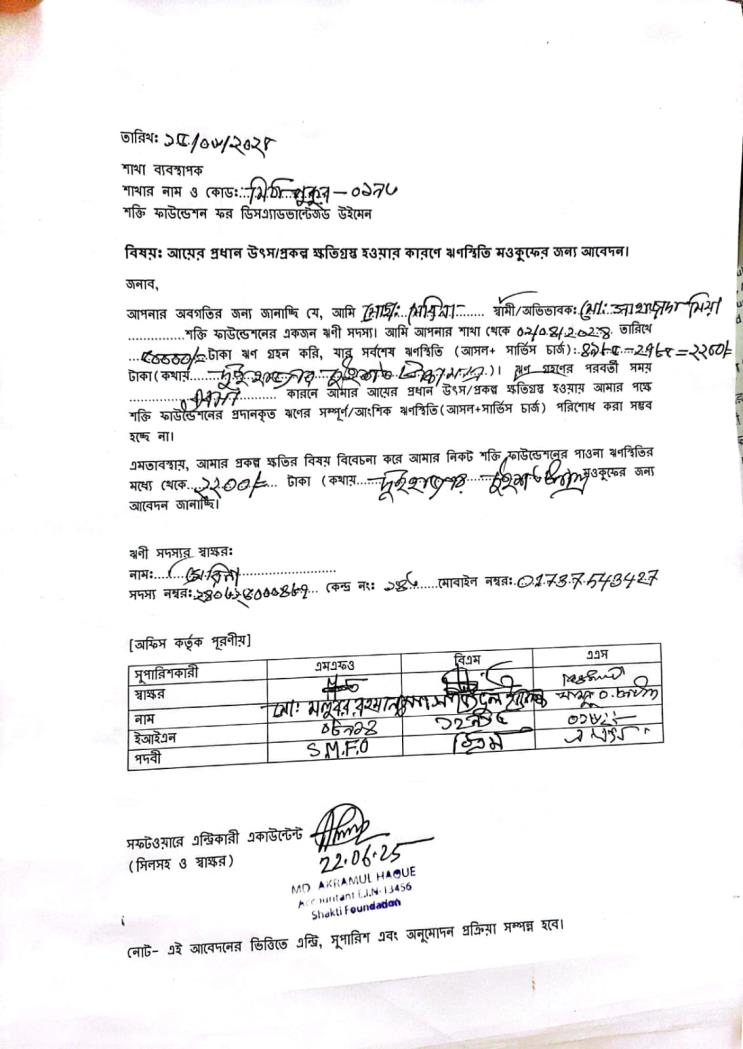 তারিখ: ১৫/০৬/২০২৫
শাখা ব্যবস্থাপক
শাখার নাম ও কোড: মিঠাপুকুর – ০১৭৬
শক্তি ফাউন্ডেশন ফর ডিসএ্যাডভান্টেজড উইমেন
বিষয়: আয়ের প্রধান উৎস/প্রকল্প ক্ষতিগ্রস্ত হওয়ার কারণে ঋণস্থিতি মওকুফের জন্য আবেদন।
জনাব,
আপনার অবগতির জন্য জানাচ্ছি যে, আমি মোছা: স্বামী/অভিভাবক: মো: মিয়া
শক্তি ফাউন্ডেশনের একজন ঋণী সদস্য। আমি আপনার শাখা থেকে ০২/০৪/২০২৪ তারিখে
৫০০০০/= টাকা ঋণ গ্রহন করি, যার সর্বশেষ ঋণস্থিতি (আসল+ সার্ভিস চার্জ) = ২২০০/=
টাকা (কথায় দুই হাজার দুইশত টাকা মাত্র)। ঋণ গ্রহণের পরবর্তী সময়
কারনে আমার আয়ের প্রধান উৎস/প্রকল্প ক্ষতিগ্রস্ত হওয়ায় আমার পক্ষে
শক্তি ফাউন্ডেশনের প্রদানকৃত ঋণের সম্পূর্ণ/আংশিক ঋণস্থিতি(আসল+সার্ভিস চার্জ) পরিশোধ করা সম্ভব
হচ্ছে না।
এমতাবস্থায়, আমার প্রকল্প ক্ষতির বিষয় বিবেচনা করে আমার নিকট শক্তি ফাউন্ডেশনের পাওনা ঋণস্থিতির
মধ্যে থেকে ২২০০/= টাকা (কথায় দুইহাজার দুইশত মওকুফের জন্য
আবেদন জানাচ্ছি।
ঋণী সদস্যর স্বাক্ষর:
নাম:
সদস্য নম্বর: কেন্দ্র নং: মোবাইল নম্বর: 01737543427
[অফিস কর্তৃক পূরণীয়]
সুপারিশকারী এমএফও বিএম এএস
স্বাক্ষর
নাম মো:
ইআইএন
পদবী S.M.F.O বিএম
সফটওয়ারে এন্ট্রিকারী একাউন্টেন্ট
(সিলসহ ও স্বাক্ষর) 22.06.25
MD AKRAMUL HAQUE
Accountant E.I.N-13456
Shakti Foundation
নোট- এই আবেদনের ভিত্তিতে এন্ট্রি, সুপারিশ এবং অনুমোদন প্রক্রিয়া সম্পন্ন হবে।